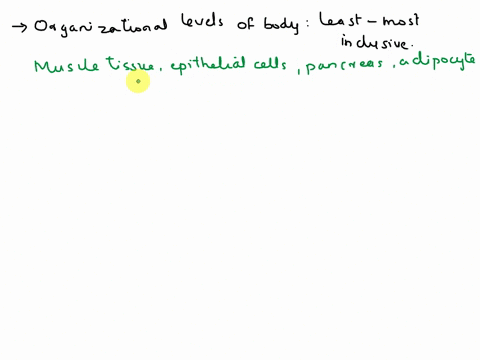 → Organizational levels of body : least - most
inclusive.
Muscle tissue, epithelial cells, pancreas, adipocyte